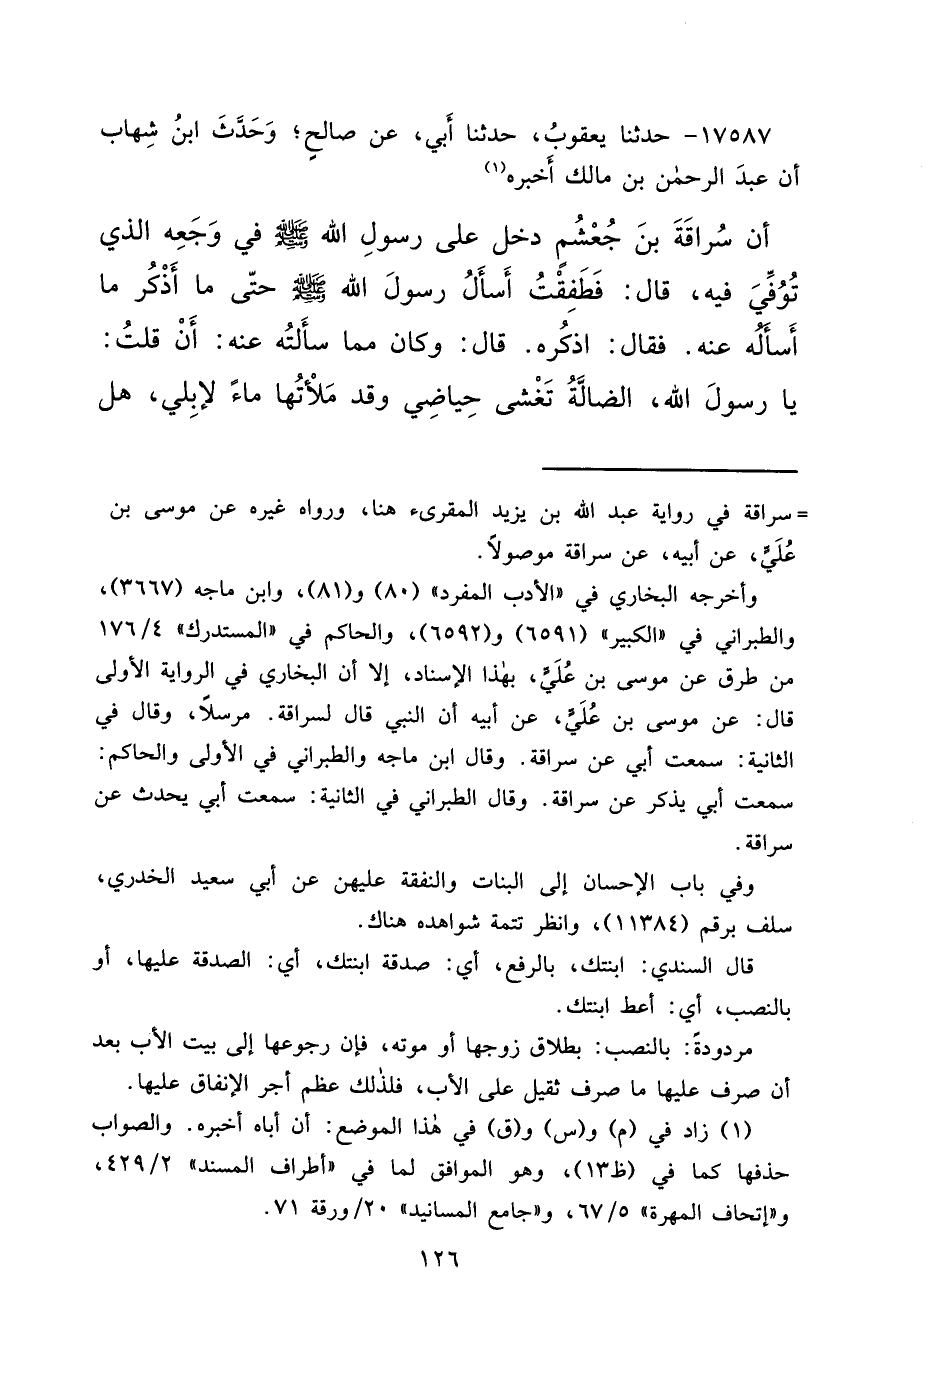 ١٧٥٨٧- حدثنا يعقوبُ، حدثنا أَبي، عن صالحٍ؛ وَحَدَّثَ ابنُ شِهاب
أن عبدَ الرحمٰن بن مالك أَخبره(١)
أن سُراقَةَ بنَ جُعْشُمٍ دخل على رسولِ الله ﷺ في وَجَعِه الذي
تُوُفِّيَ فيه، قال: فَطَفِقْتُ أَسأَلُ رسولَ الله ﷺ حتّى ما أَذْكُر ما
أَسأَلُه عنه. فقال: اذكُره. قال: وكان مما سألتُه عنه: أَنْ قلتُ:
يا رسولَ الله، الضالَّةُ تَغْشى حِياضِي وقد مَلأْتُها ماءً لإبِلي، هل
= سراقة في رواية عبد الله بن يزيد المقرىء هنا، ورواه غيره عن موسى بن
عُلَيٍّ، عن أبيه، عن سراقة موصولاً.
وأخرجه البخاري في «الأدب المفرد» (٨٠) و(٨١)، وابن ماجه (٣٦٦٧)،
والطبراني في «الكبير» (٦٥٩١) و(٦٥٩٢)، والحاكم في «المستدرك» ١٧٦/٤
من طرق عن موسى بن عُلَيٍّ، بهٰذا الإسناد، إلا أن البخاري في الرواية الأولى
قال: عن موسى بن عُلَيٍّ، عن أبيه أن النبي قال لسراقة. مرسلاً، وقال في
الثانية: سمعت أبي عن سراقة. وقال ابن ماجه والطبراني في الأولى والحاكم:
سمعت أبي يذكر عن سراقة. وقال الطبراني في الثانية: سمعت أبي يحدث عن
سراقة.
وفي باب الإحسان إلى البنات والنفقة عليهن عن أبي سعيد الخدري،
سلف برقم (١١٣٨٤)، وانظر تتمة شواهده هناك.
قال السندي: ابنتك، بالرفع، أي: صدقة ابنتك، أي: الصدقة عليها، أو
بالنصب، أي: أعط ابنتك.
مردودةً: بالنصب: بطلاق زوجها أو موته، فإن رجوعها إلى بيت الأب بعد
أن صرف عليها ما صرف ثقيل على الأب، فلذٰلك عظم أجر الإنفاق عليها.
(١) زاد في (م) و(س) و(ق) في هٰذا الموضع: أن أباه أخبره. والصواب
حذفها كما في (ظ١٣)، وهو الموافق لما في «أطراف المسند» ٤٢٩/٢،
و«إتحاف المهرة» ٦٧/٥، و«جامع المسانيد» ٢٠/ورقة ٧١.
١٢٦